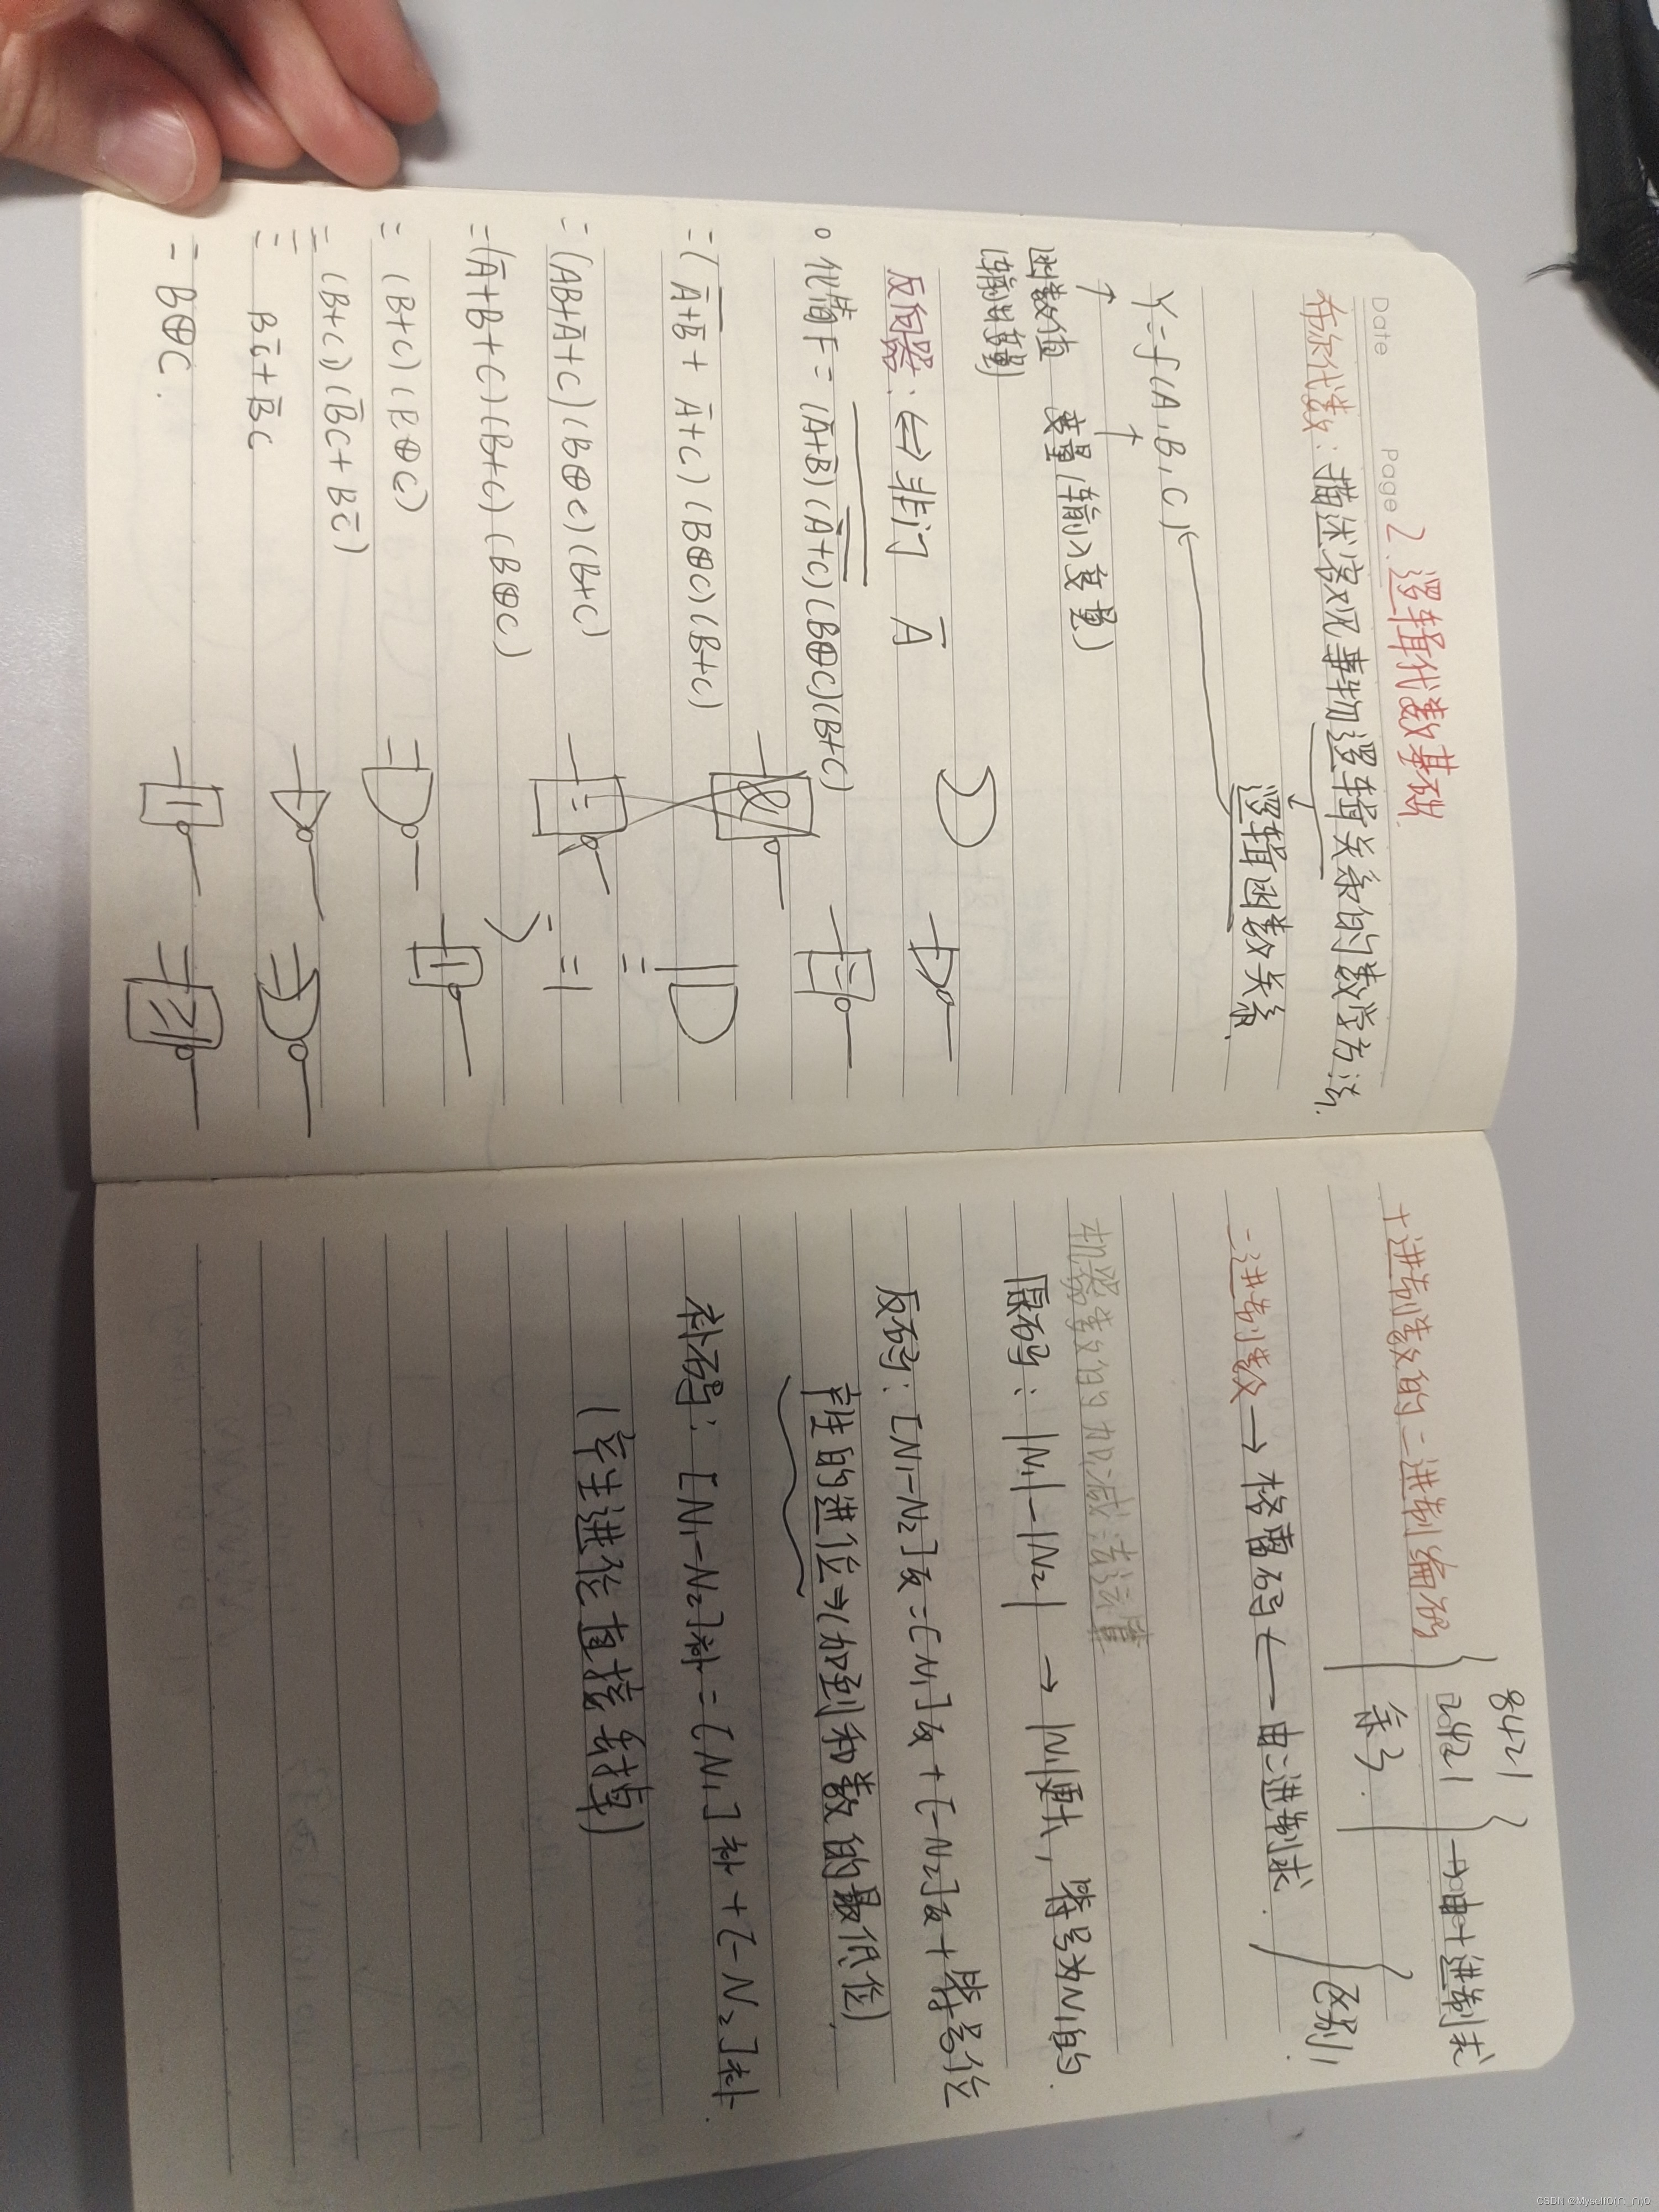 Date Page
2.逻辑代数基础
布尔代数：描述客观事物逻辑关系的数学方法.
逻辑函数关系.
Y=f(A,B,C)
函数值 变量(输入变量)
(输出变量)
反向器：⇔非门 A̅
。化简F=(A̅+B̅)(A̅+C)(B⊕C)(B+C)
=(A̅+B̅ + A̅+C)(B⊕C)(B+C)
=(AB+A̅+C)(B⊕C)(B+C)
=(A̅+B+C)(B+C)(B⊕C)
=(B+C)(B⊕C)
=(B+C)(B̅C+BC̅)
=BC̅+B̅C
=B⊕C.
十进制数的二进制编码
8421
2421
余3.
→由十进制求
二进制数→格雷码←由二进制求.
区别!
机器数的加减法运算
原码：|N1|-|N2|→|N1|更大，符号为N1的.
反码：[N1-N2]反=[N1]反+[-N2]反+符号位
产生的进位⇒(加到和数的最低位).
补码：[N1-N2]补=[N1]补+[-N2]补.
(产生进位直接丢掉)
CSDN @MyselfO(∩_∩)O